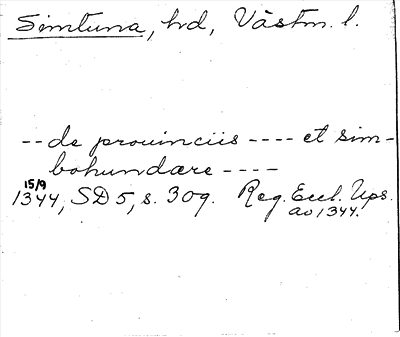 Simtuna, hd, Västm. l.
-- de prouinciis ---- et sim-
bohundare ----
15/9
1344, SD 5, s. 309. Reg. Eccl. Ups.
ao 1344.